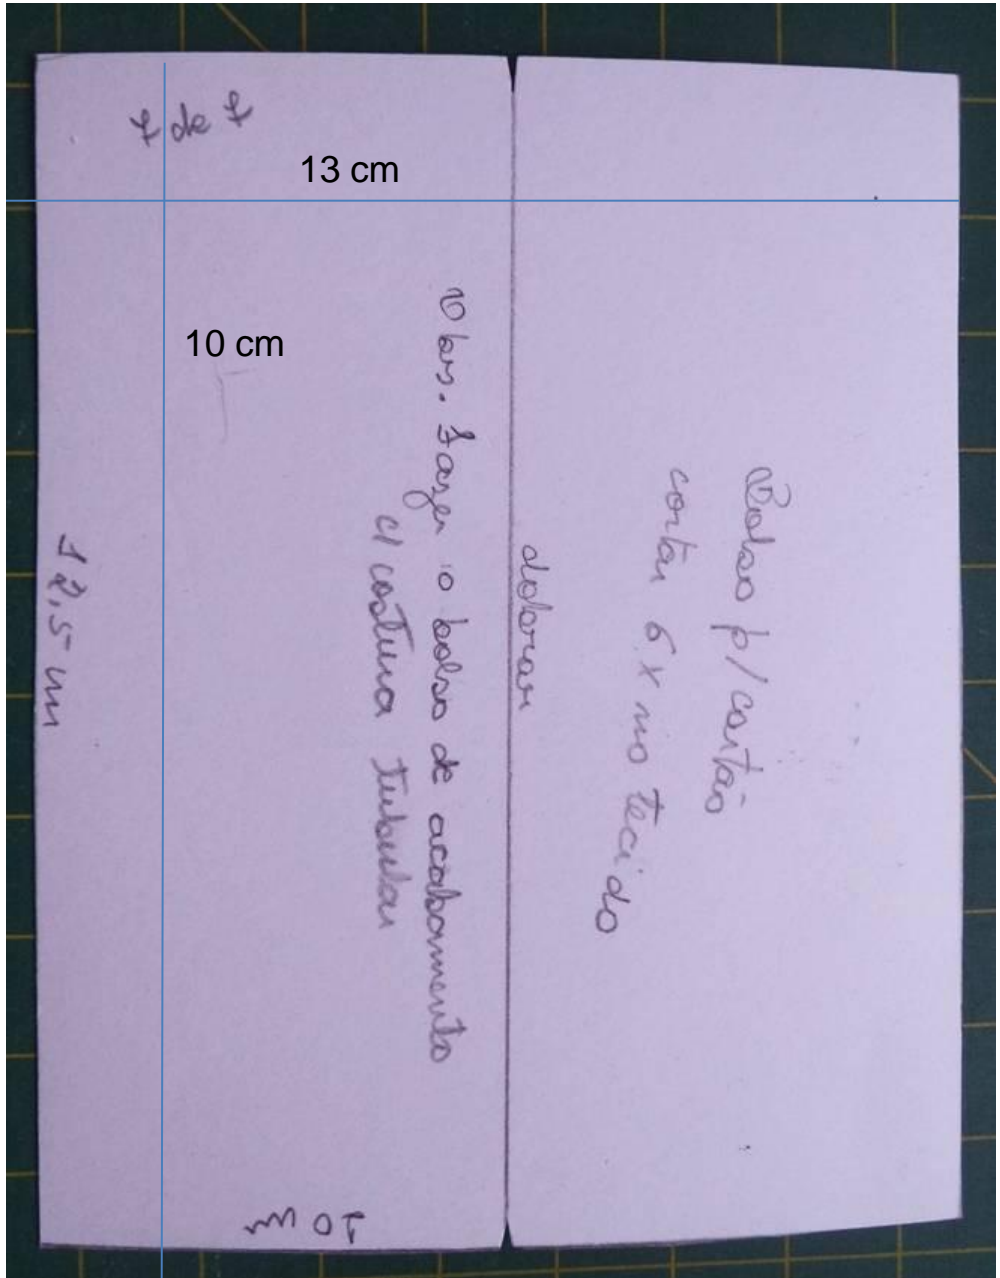 7 de 7
13 cm
10 cm
Bolso p/ cartão
cortar 6 x no tecido
dobrar
Obs. fazer o bolso de acabamento
c/ costura tubular
12,5 cm
10 cm